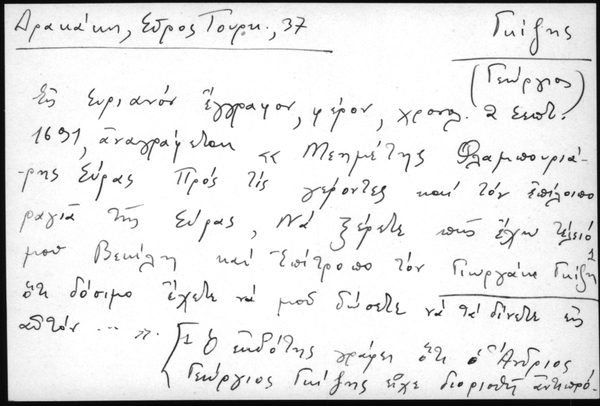 Δρακάκη, Σῦρος Τουρκ., 37
Γκίζης
(Γεώργιος)
Εἰς Συριανόν ἔγγραφον, φέρον, χρονολ. 2 Σεπτ.
1691, ἀναγράφεται «Μεημέτης Φλαμπουριά-
ρης Σύρας Πρός τίς γέροντες καί τόν ἐπίλοιπο
ραγιᾶ τῆς Σύρας, Νά ξέρετε πῶς ἔχω τέλειό
μου Βεκίλη καί Ἐπίτροπο τόν Γιωργάκι Γκίζη¹
ὅτι δόσιμο ἔχετε νά μοῦ δώσετε νά τά δίνετε εἰς
αὐτόν ... ».
[1 Ὁ ἐκδότης γράφει ὅτι ὁ Ἄνδριος
Γεώργιος Γκίζης εἶχε διορισθῆ ἀντιπρό-